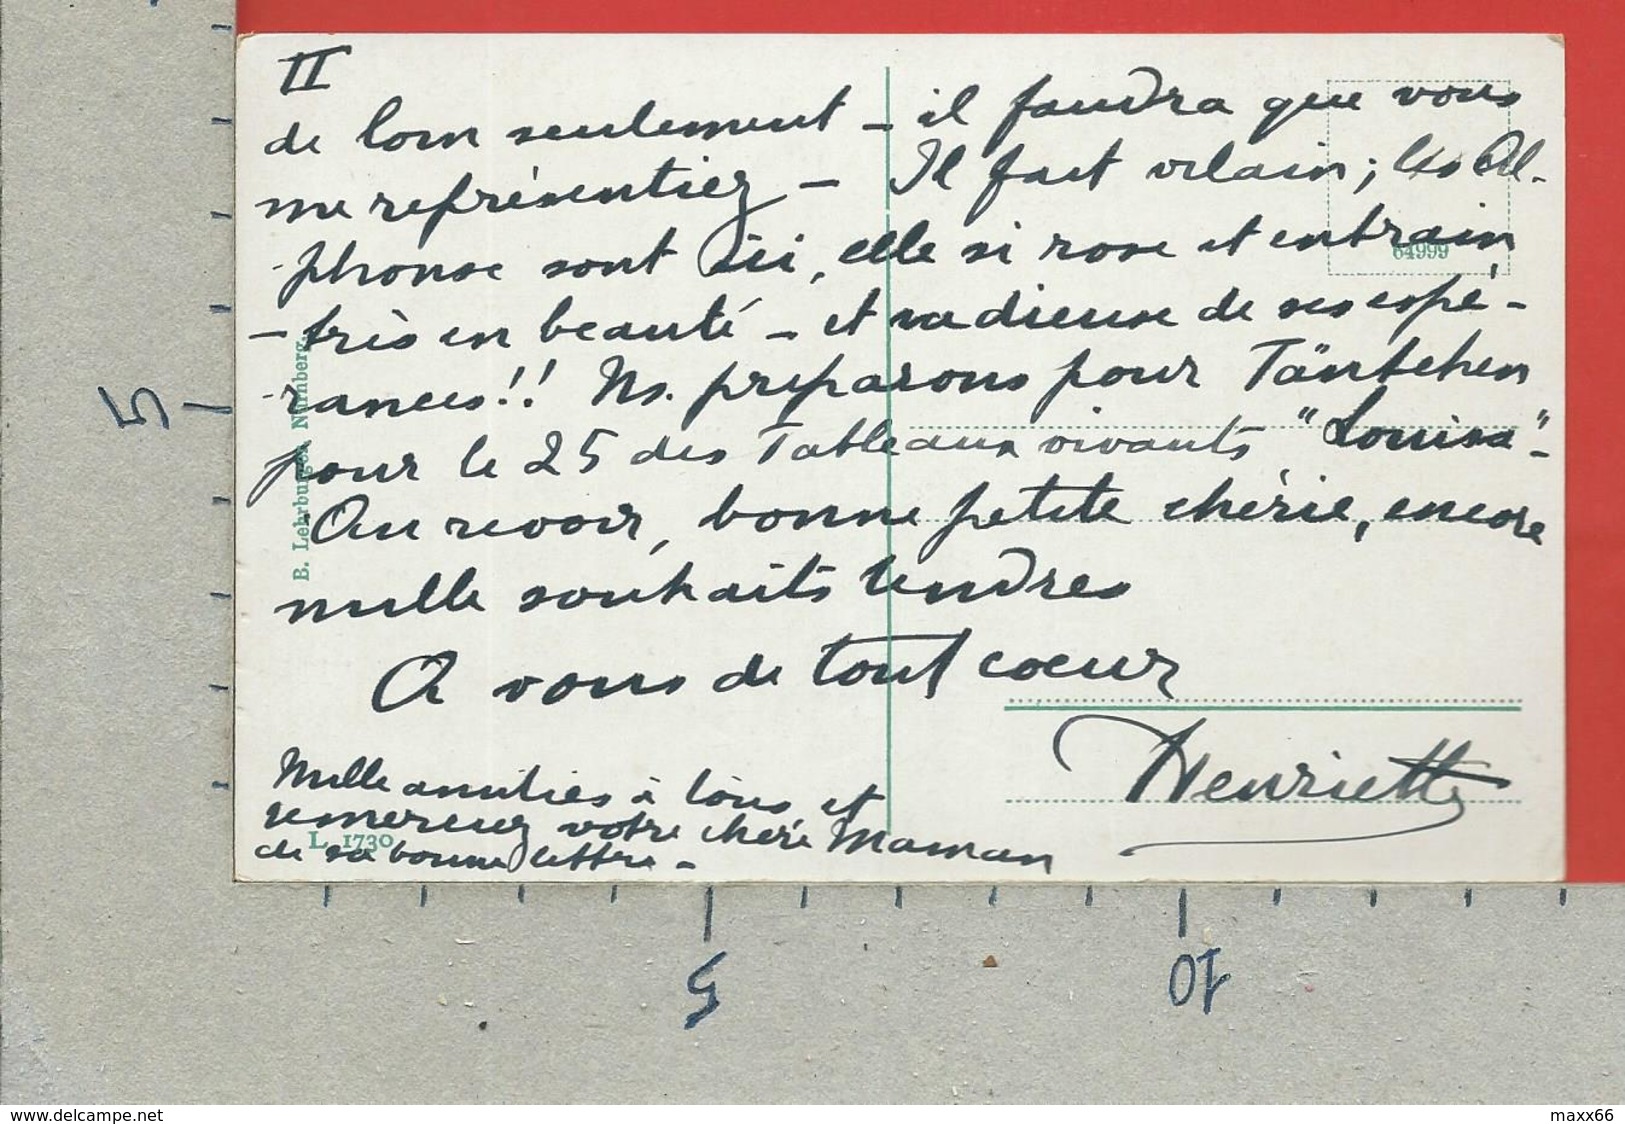 II
de loin seulement - il faudra que vous
me représentiez - Il fait vilain; les Al-
phonse sont ici, elle si rose et entrain,
- très en beauté - et radieuse de ses espé-
rances!! Ns. preparons pour Täntchen
pour le 25 des Tableaux vivants "Louisa"-
Au revoir, bonne petite chérie, encore
mille souhaits tendres
A vous de tout coeur
Henriette
Mille amitiés à tous et
remerciez votre chère Maman
de sa bonne lettre -
64999
B. Lehrburger, Nürnberg.
L. 1730
5
5
10
www.delcampe.net
maxx66